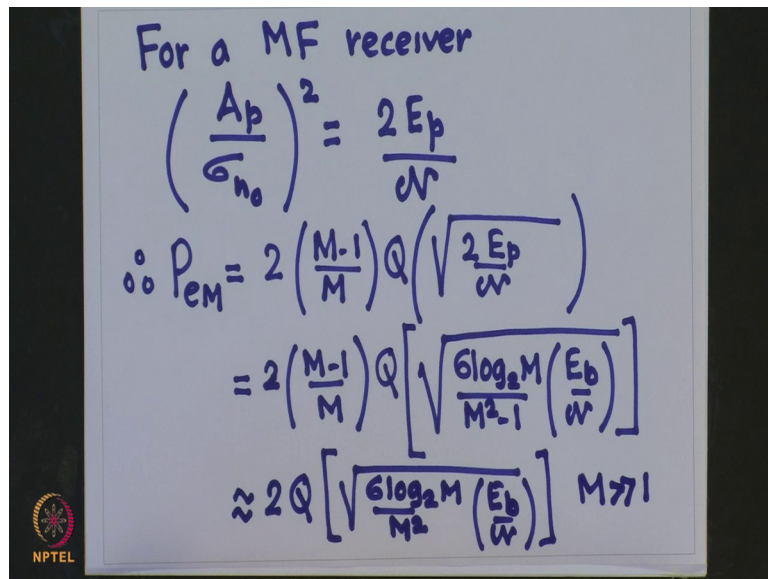 For a MF receiver
(Ap/σn₀)² = 2Ep/𝒩
∴ PeM = 2(M-1/M)Q(√(2Ep/𝒩))
= 2(M-1/M)Q[√(6log₂M/M²-1 (Eb/𝒩))]
≈ 2Q[√(6log₂M/M² (Eb/𝒩))] M>>1
NPTEL